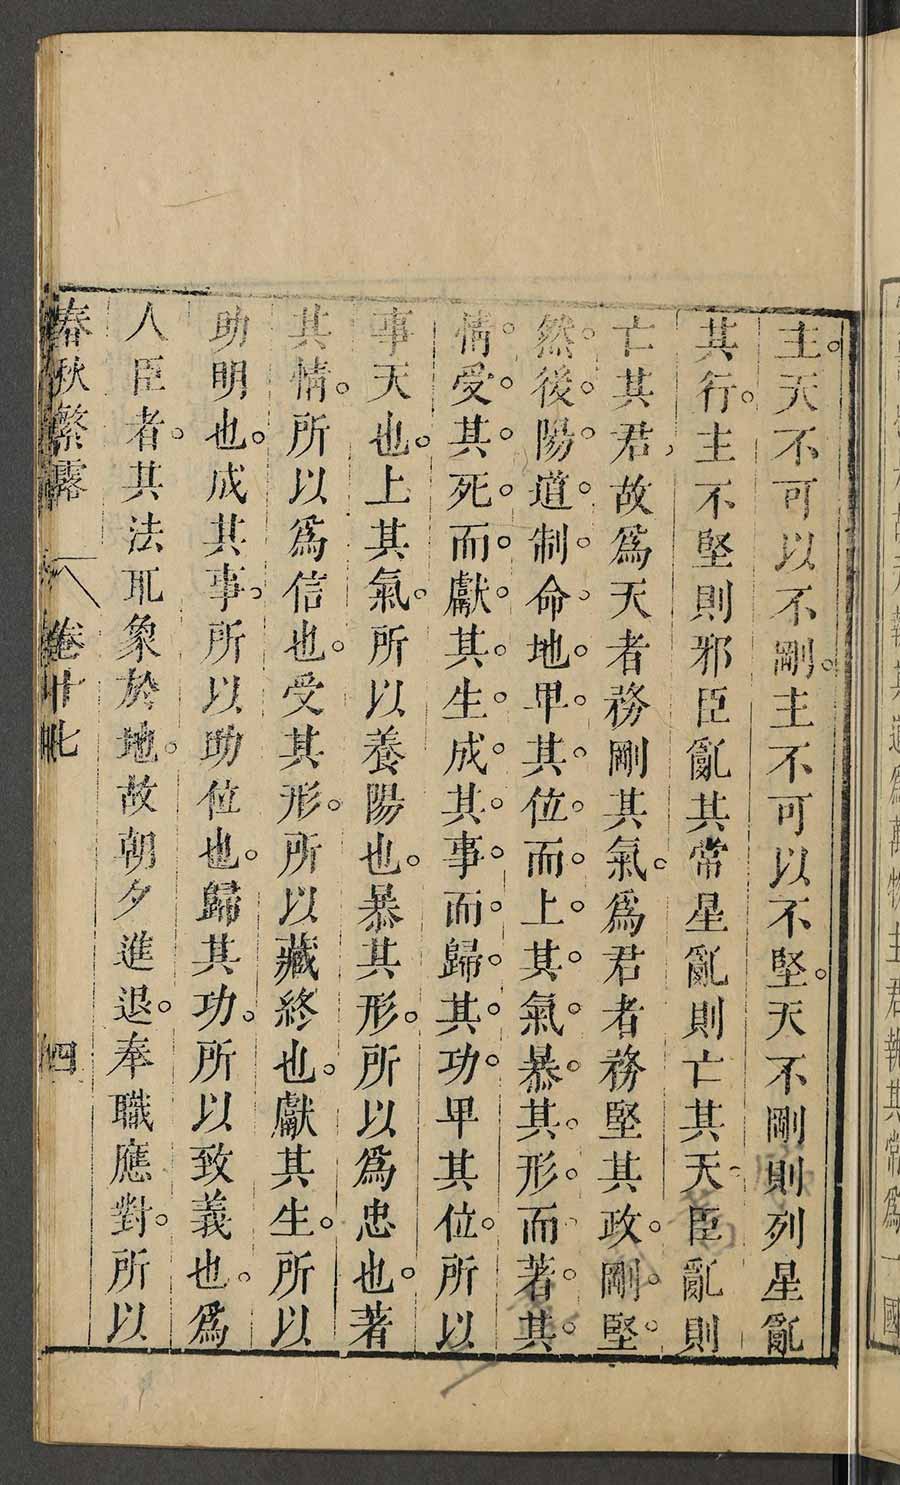 主天不可以不剛主不可以不堅天不剛則列星亂
其行主不堅則邪臣亂其常星亂則亡其天臣亂則
亡其君故爲天者務剛其氣爲君者務堅其政剛堅
然後陽道制命地卑其位而上其氣暴其形而著其
情受其死而獻其生成其事而歸其功卑其位所以
事天也上其氣所以養陽也暴其形所以爲忠也著
其情所以爲信也受其形所以藏終也獻其生所以
助明也成其事所以助位也歸其功所以致義也爲
人臣者其法取象於地故朝夕進退奉職應對所以
春秋繁露 卷十七 四